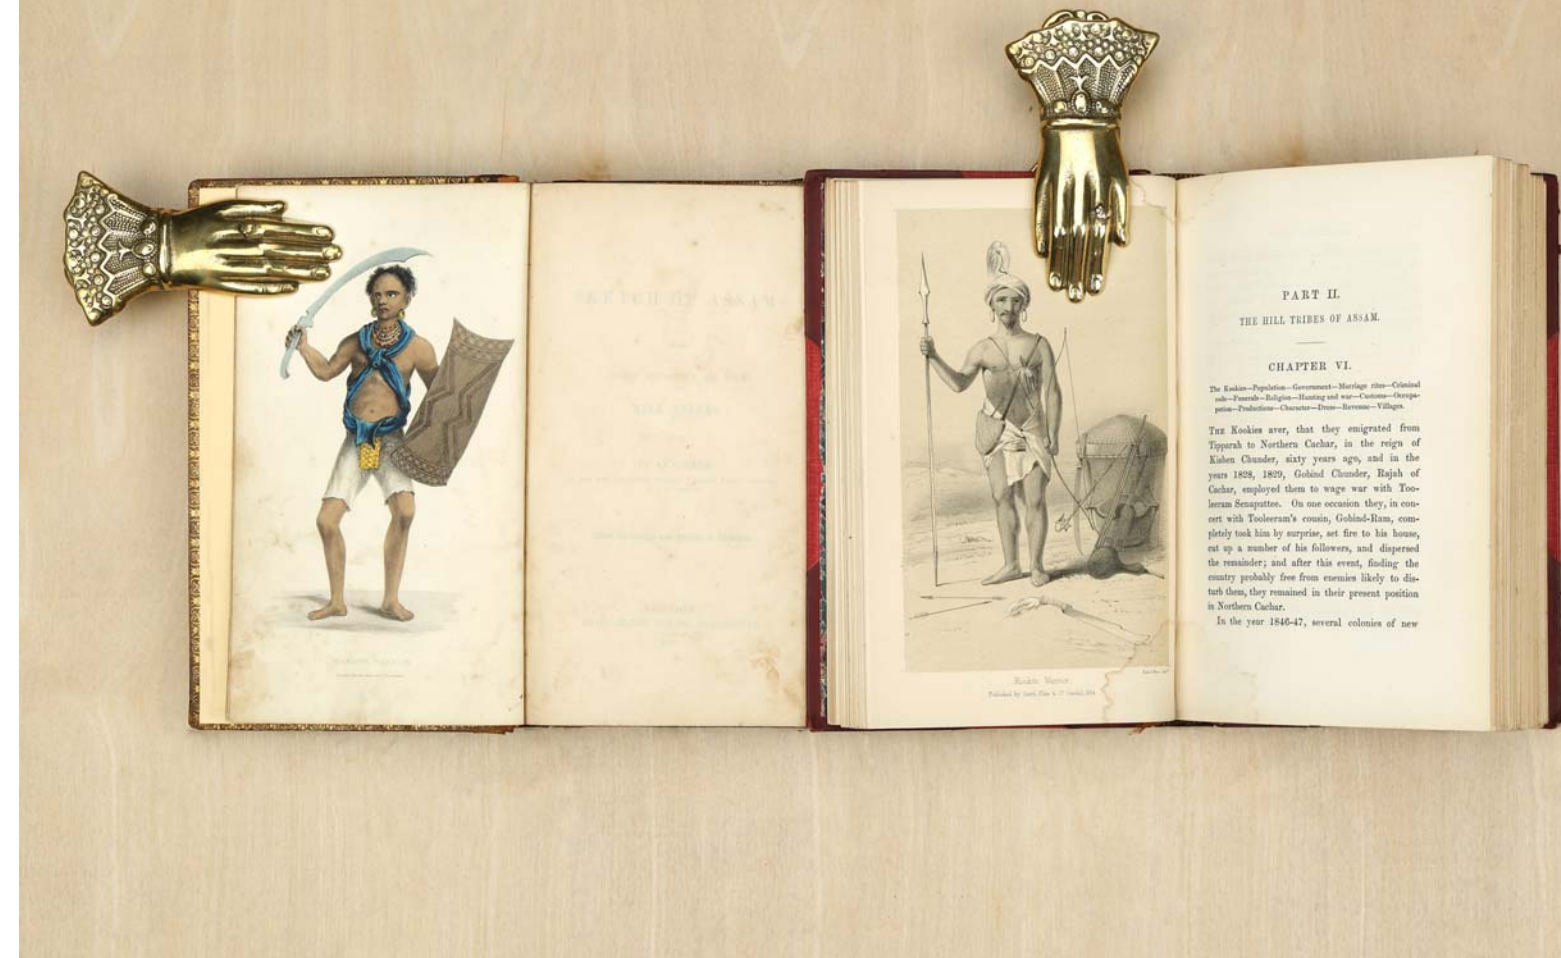 Kookie Warrior.
Published by Smith Elder & Co Cornhill,
PART II.
THE HILL TRIBES OF ASSAM.
CHAPTER VI.
The Kookies—Population—Government—Marriage rites—Criminal
code—Funerals—Religion—Hunting and war—Customs—Occupa-
pation—Productions—Character—Dress—Revenue—Villages.
THE Kookies aver, that they emigrated from
Tipparah to Northern Cachar, in the reign of
Kishen Chunder, sixty years ago, and in the
years 1828, 1829, Gobind Chunder, Rajah of
Cachar, employed them to wage war with Too-
leeram Senaputtee. On one occasion they, in con-
cert with Tooleeram's cousin, Gobind-Ram, com-
pletely took him by surprise, set fire to his house,
cut up a number of his followers, and dispersed
the remainder; and after this event, finding the
country probably free from enemies likely to dis-
turb them, they remained in their present position
in Northern Cachar.
In the year 1846-47, several colonies of new